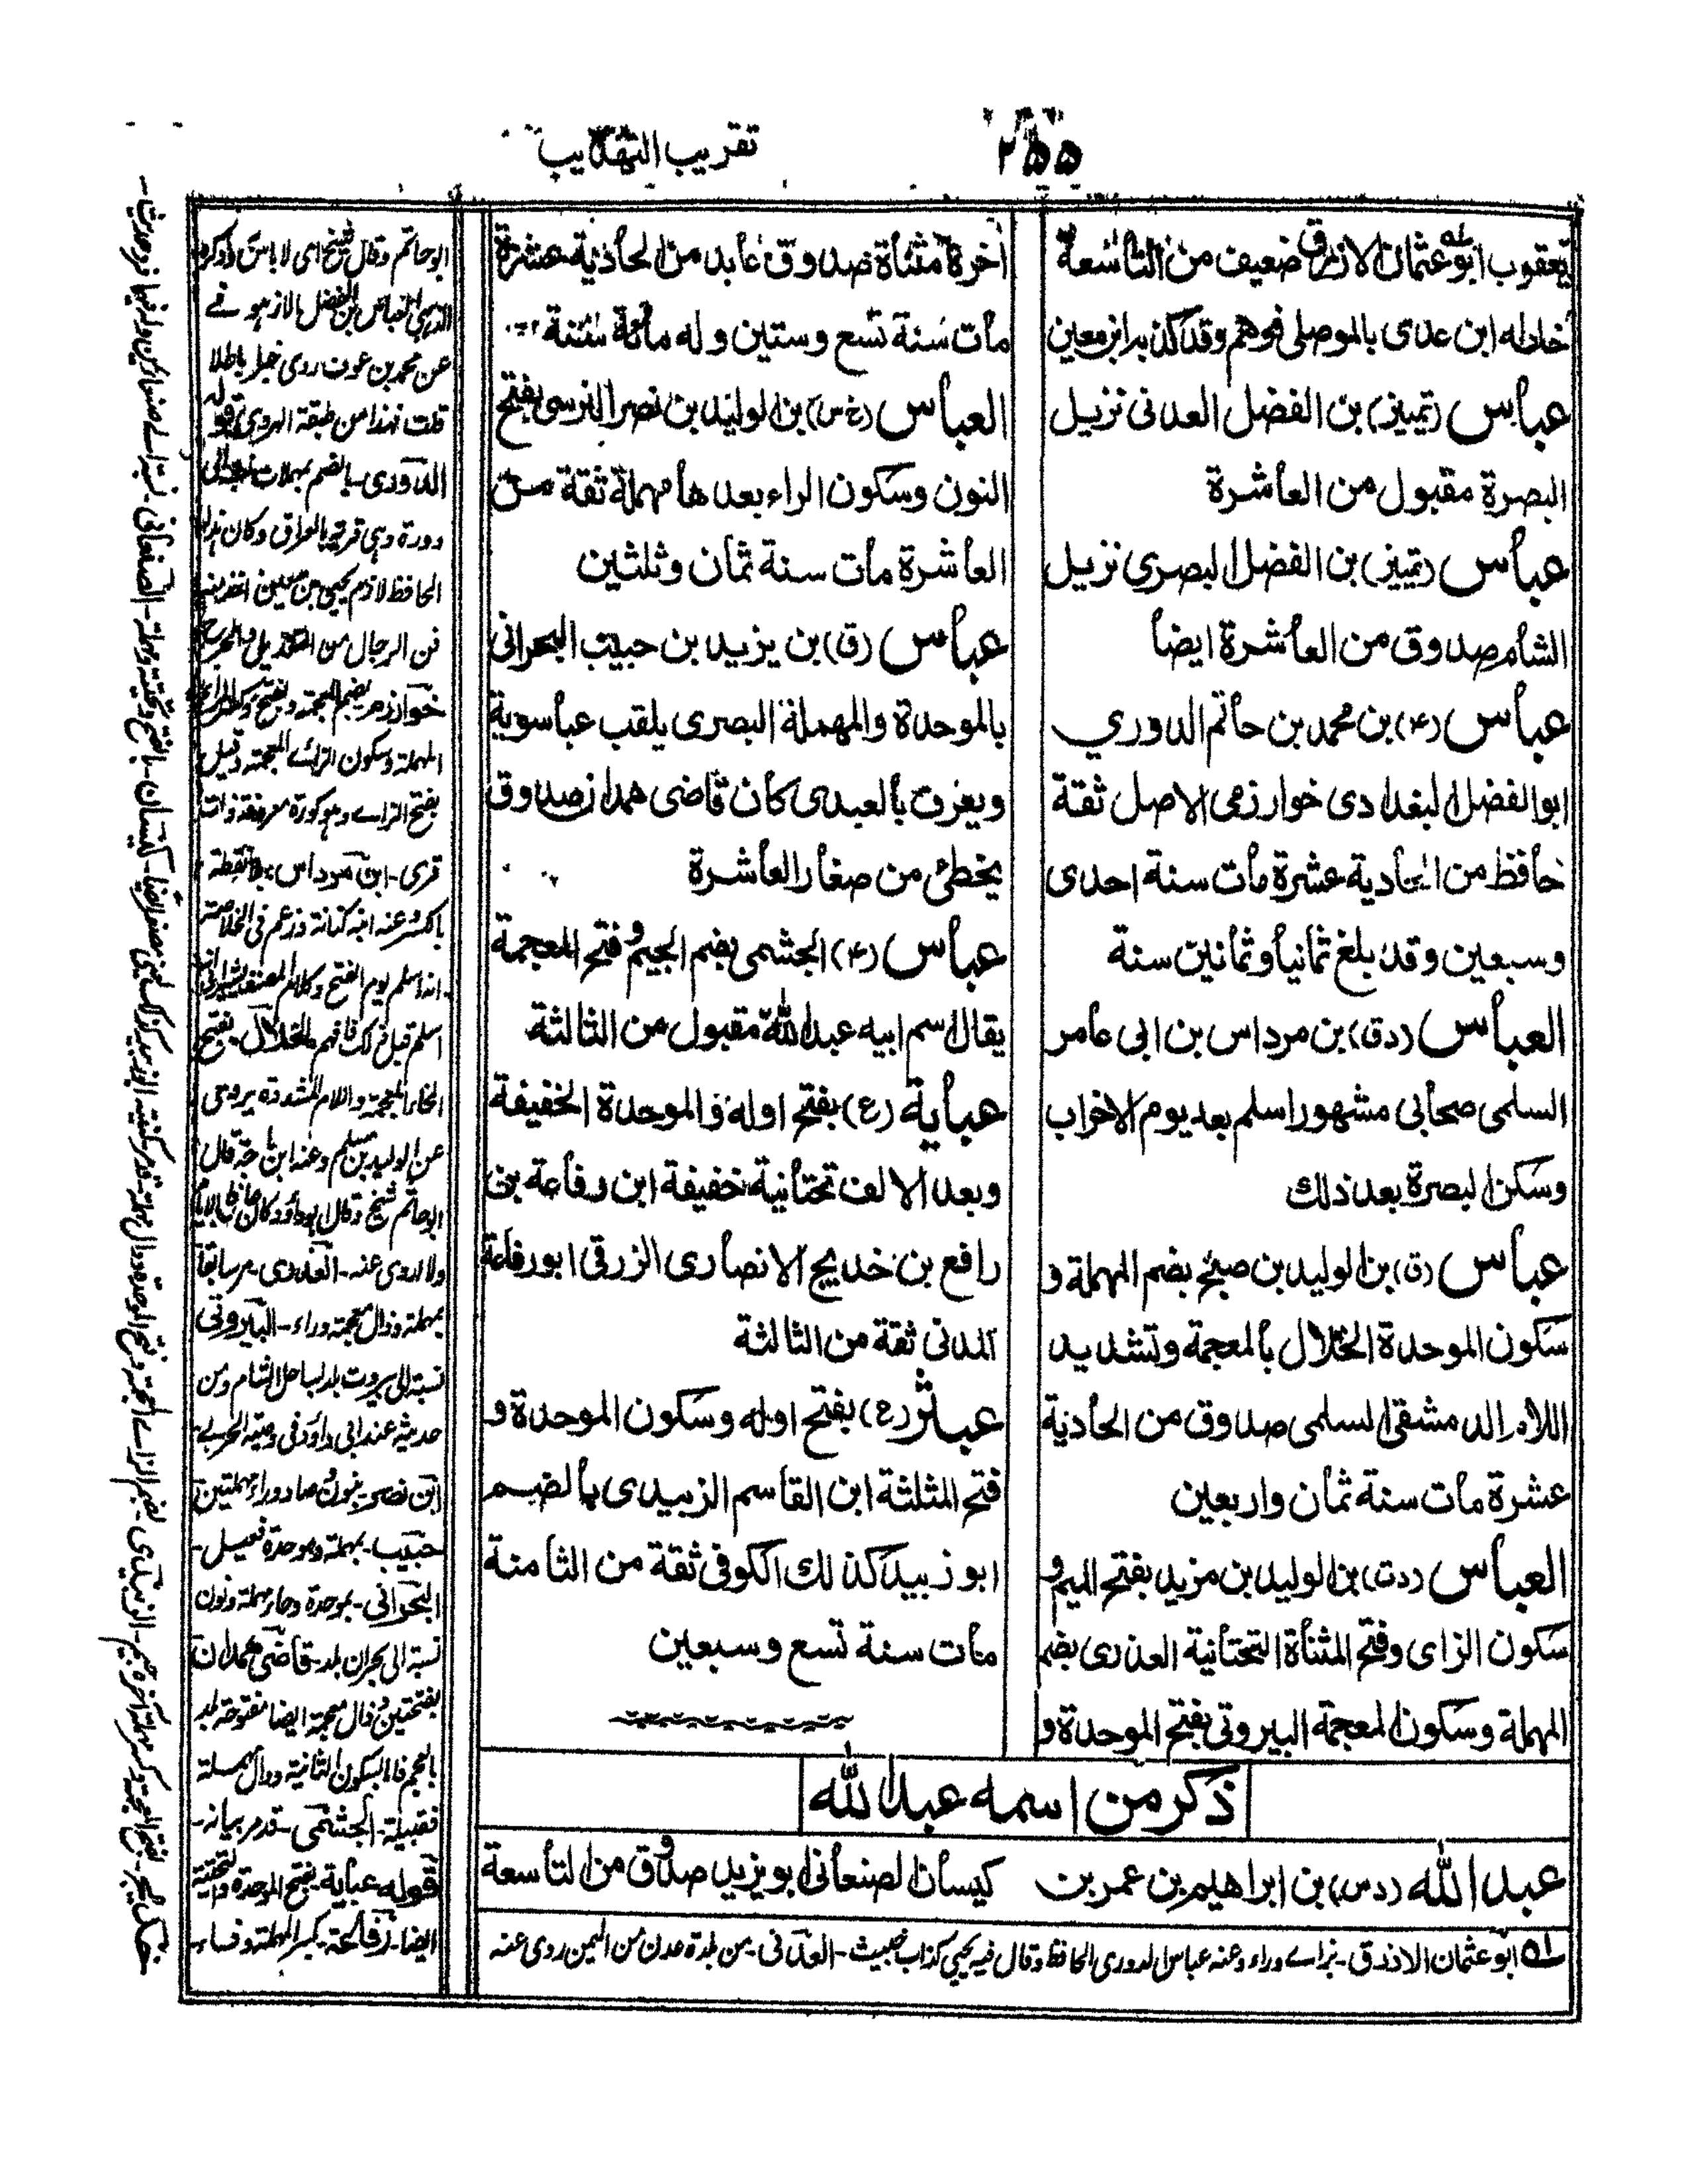 تقريب التهذيب
٢٥٥
يعقوب ابو عثمان الازرق ضعيف من التاسعة
خلاله ابن عدى بالموصلى فوهم وقد كذبه ابن معين
عباس (تمييز) بن الفضل العدنى نزيل
البصرة مقبول من العاشرة
عباس (تمييز) بن الفضل البصري نزيل
الشام صدوق من العاشرة ايضا
عباس (۴) بن محمد بن حاتم الدوري
ابو الفضل البغدادى خوارزمى الاصل ثقة
حافظ من الحادية عشرة مات سنة احدى
وسبعين وقد بلغ ثمانيا وثمانين سنة
العباس (دق) بن مرداس بن ابى عامر
السلمى صحابى مشهور اسلم بعد يوم الاحزاب
وسكن البصرة بعد ذلك
عباس (ق) بن الوليد بن صبح بضم المهملة و
سكون الموحدة الخلال بالمعجمة وتشديد
اللام الدمشقى السلمى صدوق من الحادية
عشرة مات سنة ثمان واربعين
العباس (دت) بن الوليد بن مزيد بفتح الميم و
سكون الزاى وفتح المثناة التحتانية العذرى بضم
المهملة وسكون المعجمة البيروتى بفتح الموحدة و
اخرة مثناة صدوق عابد من الحادية عشرة
مات سنة تسع وستين وله مائة سنة
العباس (خ س) بن الوليد بن نصر النرسى بفتح
النون وسكون الراء بعدها مهملة ثقة من
العاشرة مات سنة ثمان وثلثين
عباس (ق) بن يزيد بن حبيب البحرانى
بالموحدة والمهملة البصرى يلقب عباسوية
ويعرف بالعبدى كان قاضى همدان صدوق
يخطئ من صغار العاشرة
عباس (۴) الجشمى بضم الجيم وفتح المعجمة
يقال اسم ابيه عبدالله مقبول من الثالثة
عباية (ع) بفتح اوله والموحدة الخفيفة
وبعد الالف تحتانية خفيفة ابن رفاعة بن
رافع بن خديج الانصارى الزرقى ابو رفاعة
المدنى ثقة من الثالثة
عبثر (ع) بفتح اوله وسكون الموحدة و
فتح المثلثة ابن القاسم الزبيدى بالضم
ابو زبيد كذلك الكوفى ثقة من الثامنة
مات سنة تسع وسبعين
ذكر من اسمه عبدالله
عبدالله (دس) بن ابراهيم بن عمر بن كيسان الصنعانى ابو يزيد صدوق من التاسعة
له ابو عثمان الازرق - بزاے وراء وعنه عباس الدورى الحافظ وقال فيه يحيى كذاب خبيث - العدنى - من بلدة عدن من اليمن روى عنه
ابو حاتم وقال شيخ اى لا باس وذكره
الذهبى العباس بن الفضل
عن محمد بن عوف روى خبرا باطلا
قلت هذا من طبقة الهروى قوله
الدورى - بالضم بمهملات نسبة الى
دورة وهى قرية بالعراق وكان هذا
الحافظ لازم يحيى بن معين
فن الرجال من التعديل والجرح
خوارزم بضم المعجمة وبفتح
المهملة وسكون الزاے المعجمة وقيل
بفتح الزاے وهو كورة
قرى - ابن مرداس
عنه ابنه كنانة وزعم فى الخلاصة
انه اسلم يوم الفتح وكلام المصنف
اسلم قبل ذلك فافهم - الخلال - بفتح
الخاء المعجمة واللام المشددة يروى
عن الوليد بن مسلم وعنه ابن ماجة قال
ابو حاتم شيخ وقال ابو داود
ولا اروى عنه - العذرى - مر سابقا
بمهملة وذال معجمة وراء - البيروتى
نسبة الى بيروت بلد بساحل الشام ومن
حديثه عند ابى داود فى
ابن نصر - بنون وصاد وراء مهملتين
حبيب - بمهملة وموحدة فعيل -
البحرانى - بموحدة وحاء مهملة ونون
نسبة الى بحران بلد - قاضى همدان
بفتحتين وذال معجمة ايضا مفتوحة بلد
بالعجم فاما بسكون الثانية ودال مهملة
فقبيلة - الجشمى - قد مر بيانه -
قوله عباية - بفتح الموحدة والتحتية
ايضا - رفاعة - بكسر المهملة وفاء